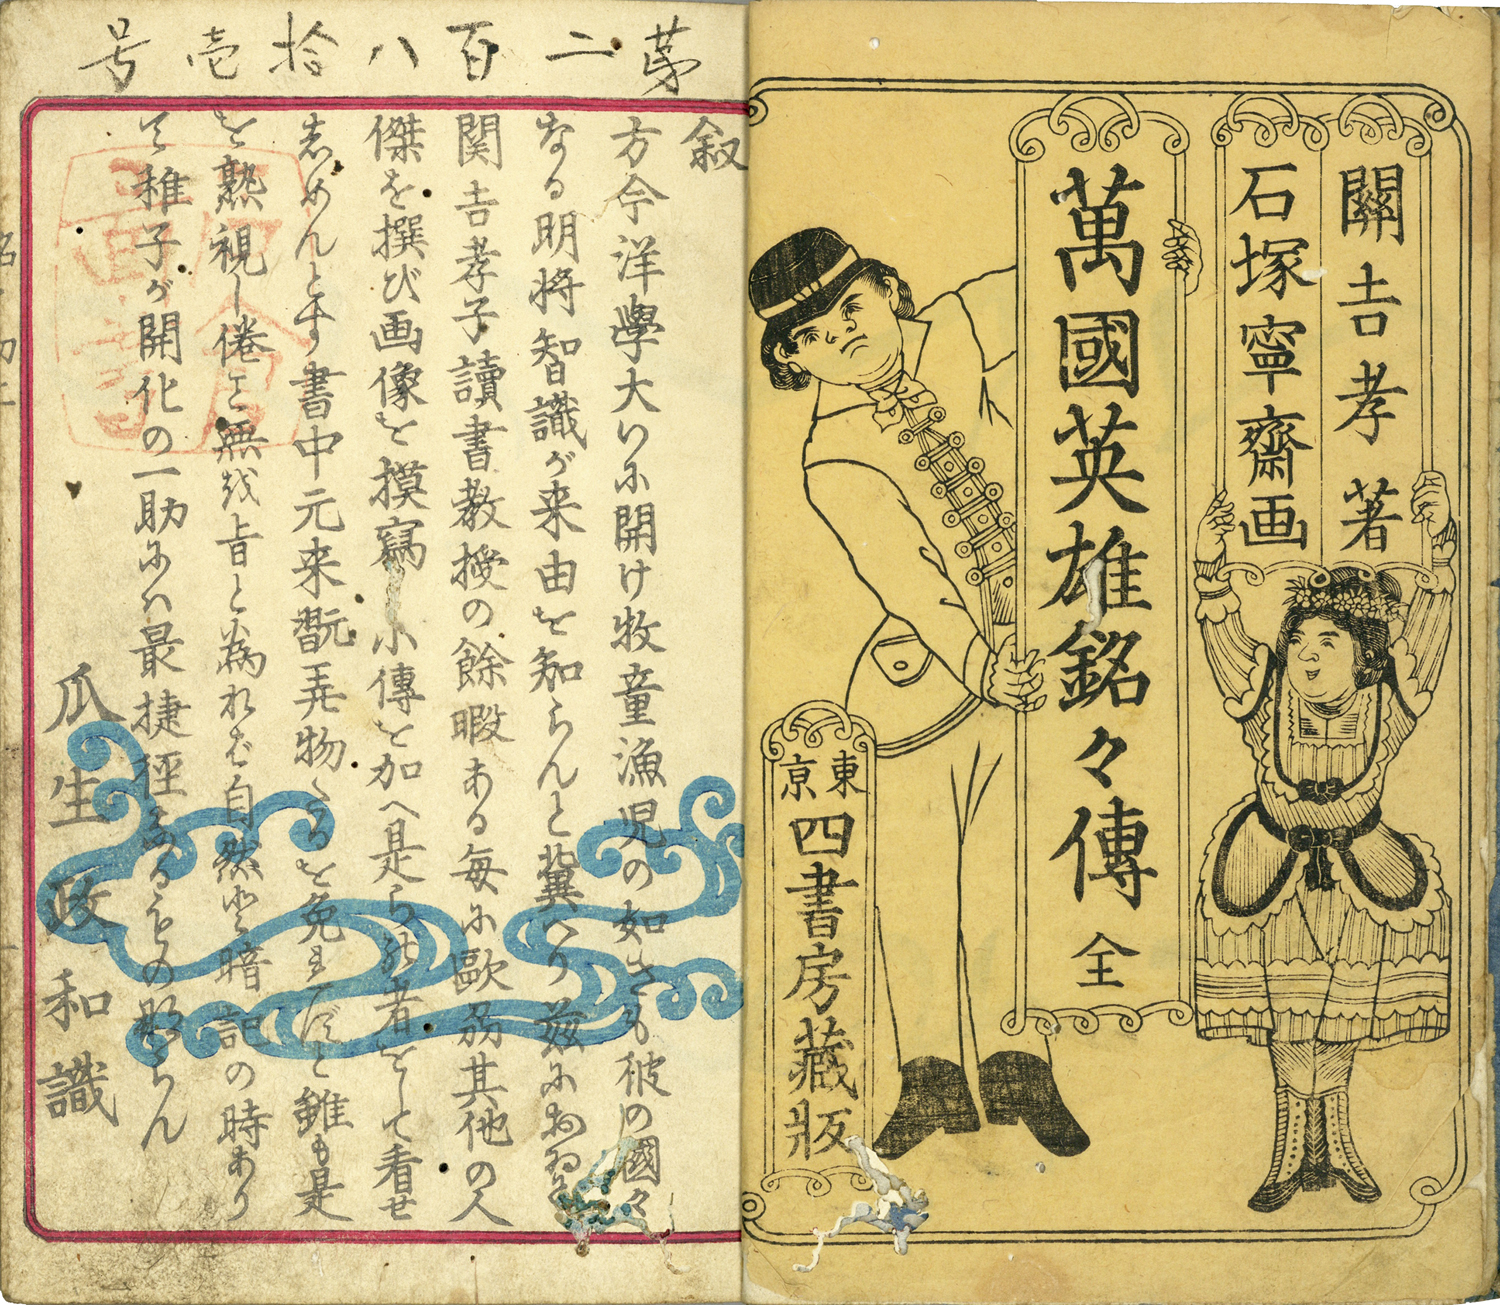 關吉孝著
石塚寧齋画
萬國英雄銘々傳 全
東京
四書房藏版
第二百八拾壱号
叙
方今洋學大いに開け牧童漁児の如きも彼の國々
なる明将智識が来由を知らんと冀へり茲に
関吉孝子讀書教授の餘暇ある毎に歐羽其他の人
傑を撰び画像を摸寫し小傳を加へ是らの者をして看せ
しめんとす書中元来翫弄物たるを免
れずと雖も是
を熟視し倦こと無
自然と暗記の時あり
て稚子が開化の一助には最捷徑
なるもの
ならん
瓜生政和識